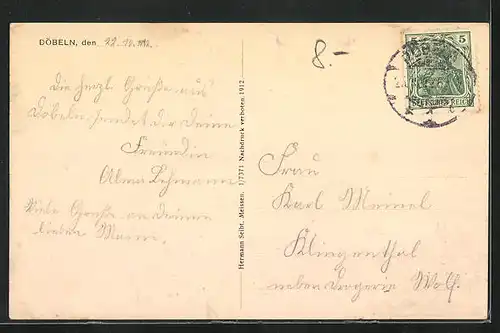 DÖBELN, den 22.10.1912.
8.-
5
DEUTSCHES REICH
Die herzl. Grüße aus
Döbeln sendet dir deine
Freundin
Alma Lehmann
Viele Grüße an deinen
lieben Mann.
Hermann Seibt, Meissen. 1/7371 Nachdruck verboten 1912
Frau
Karl Meinel
Klingenthal
neben Drogerie Wolf.